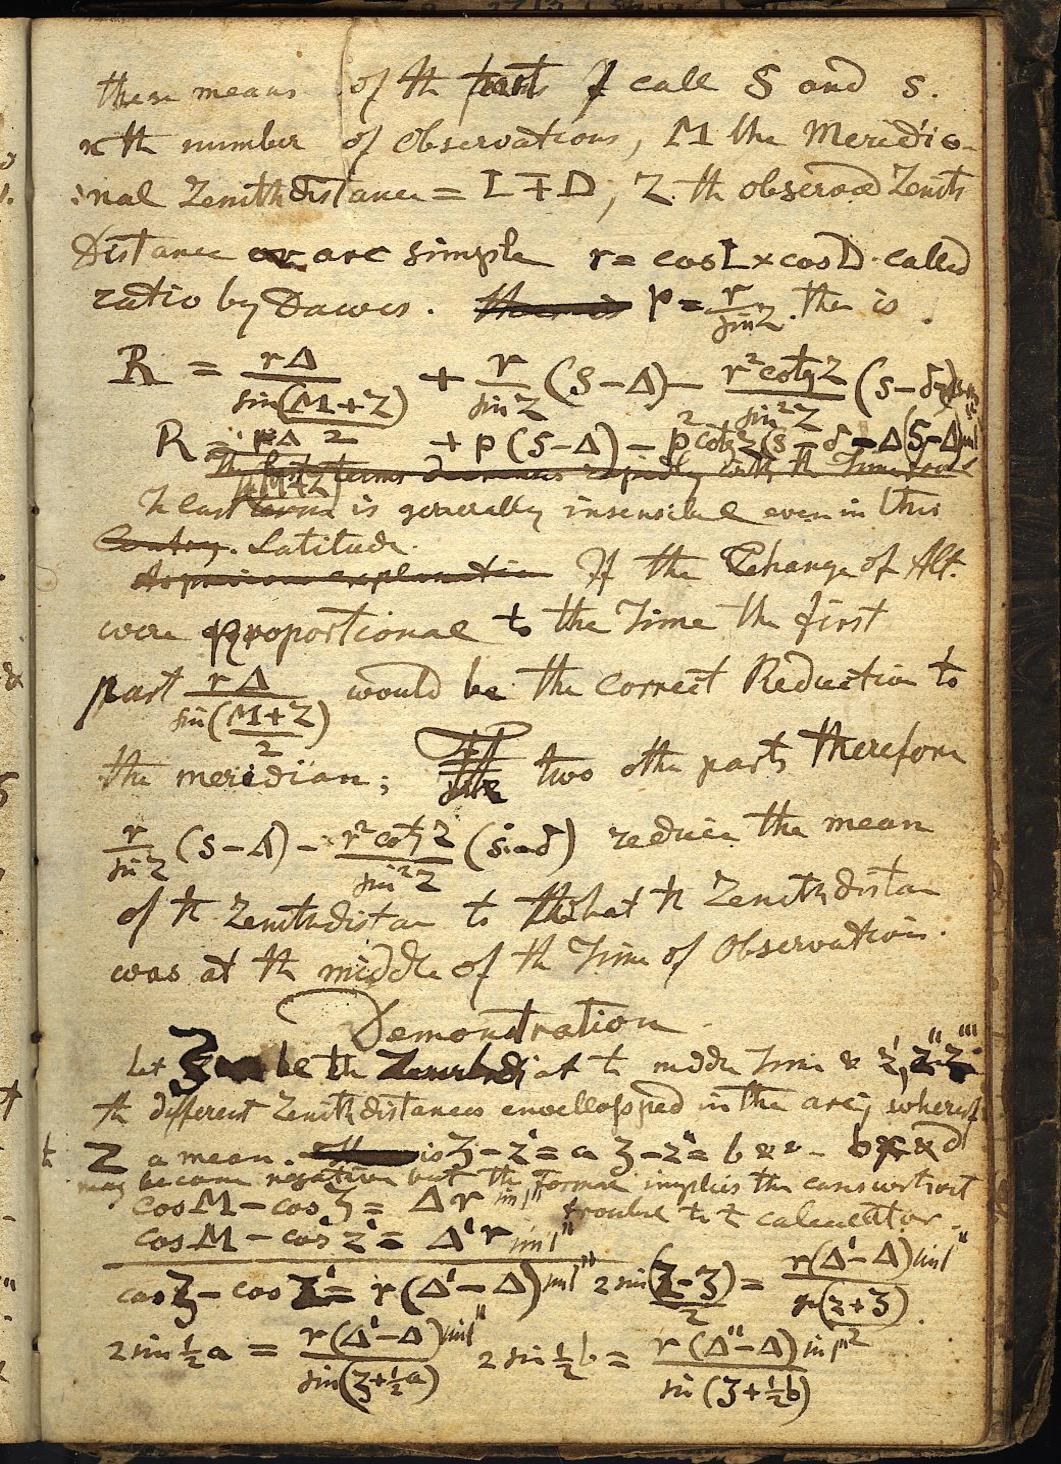 these means of the parts I call S and s.
n th number of Observations, M the Meridio-
nal Zenithdistance = L ∓ D, Z th observed Zenits
Distance or arc simple r = cos L × cos D called
ratio by Dawes. there is p = r/sin Z. the is
R = rΔ/sin(M+Z) + r/sin Z (S−Δ) − r² cotg Z/sin² Z (s−δ)
R = rΔ/sin(M+Z)/2 + p(S−Δ) − p² cotg Z (s−δ−Δ(S−Δ)
terms decreases rapidly with th Time
is generally insensible even in this
Contry. Latitude.
As previous explanation If the Change of Alt.
were proportional to the Time the first
part rΔ/sin(M+Z)/2 would be the correct Reduction to
the meridian; The two othe parts therefore
r/sin Z (S−Δ) − r² cotg Z/sin² Z (s−δ) reduce the mean
of th Zenithdistan to what th Zenithdistan
was at th middle of th Time of Observation.
Demonstration
let ʒ be th at t middle Time & z', z'' z'''
th different Zenithdistances envellopped in the arcs, whereof
Z a mean. is ʒ − z' = a ʒ − z'' = b &&
may become negative but the formae implies the cares without
cos M − cos ʒ = Δ r sin 1'' trouble to t calculator.
cos M − cos z' = Δ' r sin 1''
cos ʒ − cos z' = r(Δ'−Δ) sin 1'' 2 sin (z−ʒ)/2 = r(Δ'−Δ) sin 1''/(z+ʒ)
2 sin ½ a = r(Δ'−Δ) sin 1''/sin(ʒ+½a) 2 sin ½ b = r(Δ''−Δ) sin 1''/sin(ʒ+½b)